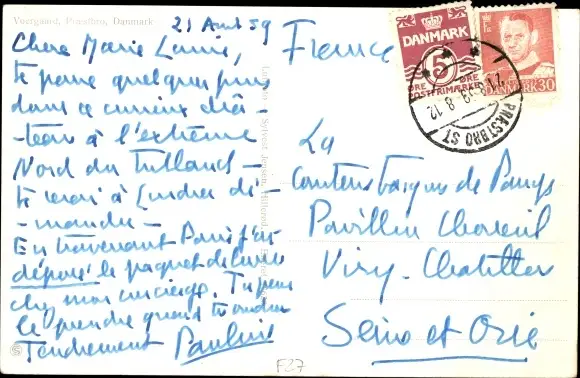 Voergaard, Præstbro, Danmark
21 Août 59
Chère Marie Laure,
je passe quelques jours
dans ce curieux châ-
teau à l'extrême
Nord du Jutland -
à Londres di-
manche -
En traversant Paris j'ai
déposé le paquet de
chez mon concierge. Tu peux
le prendre quand tu voudras
Tendrement Pauline
France
La
Comtesse de
Pavillon
Viry-Chatillon
Seine et Oise
DANMARK
5
ØRE ØRE
POSTFRIMÆRKE
DANMARK 30
PRÆSTBRO ST.
F27